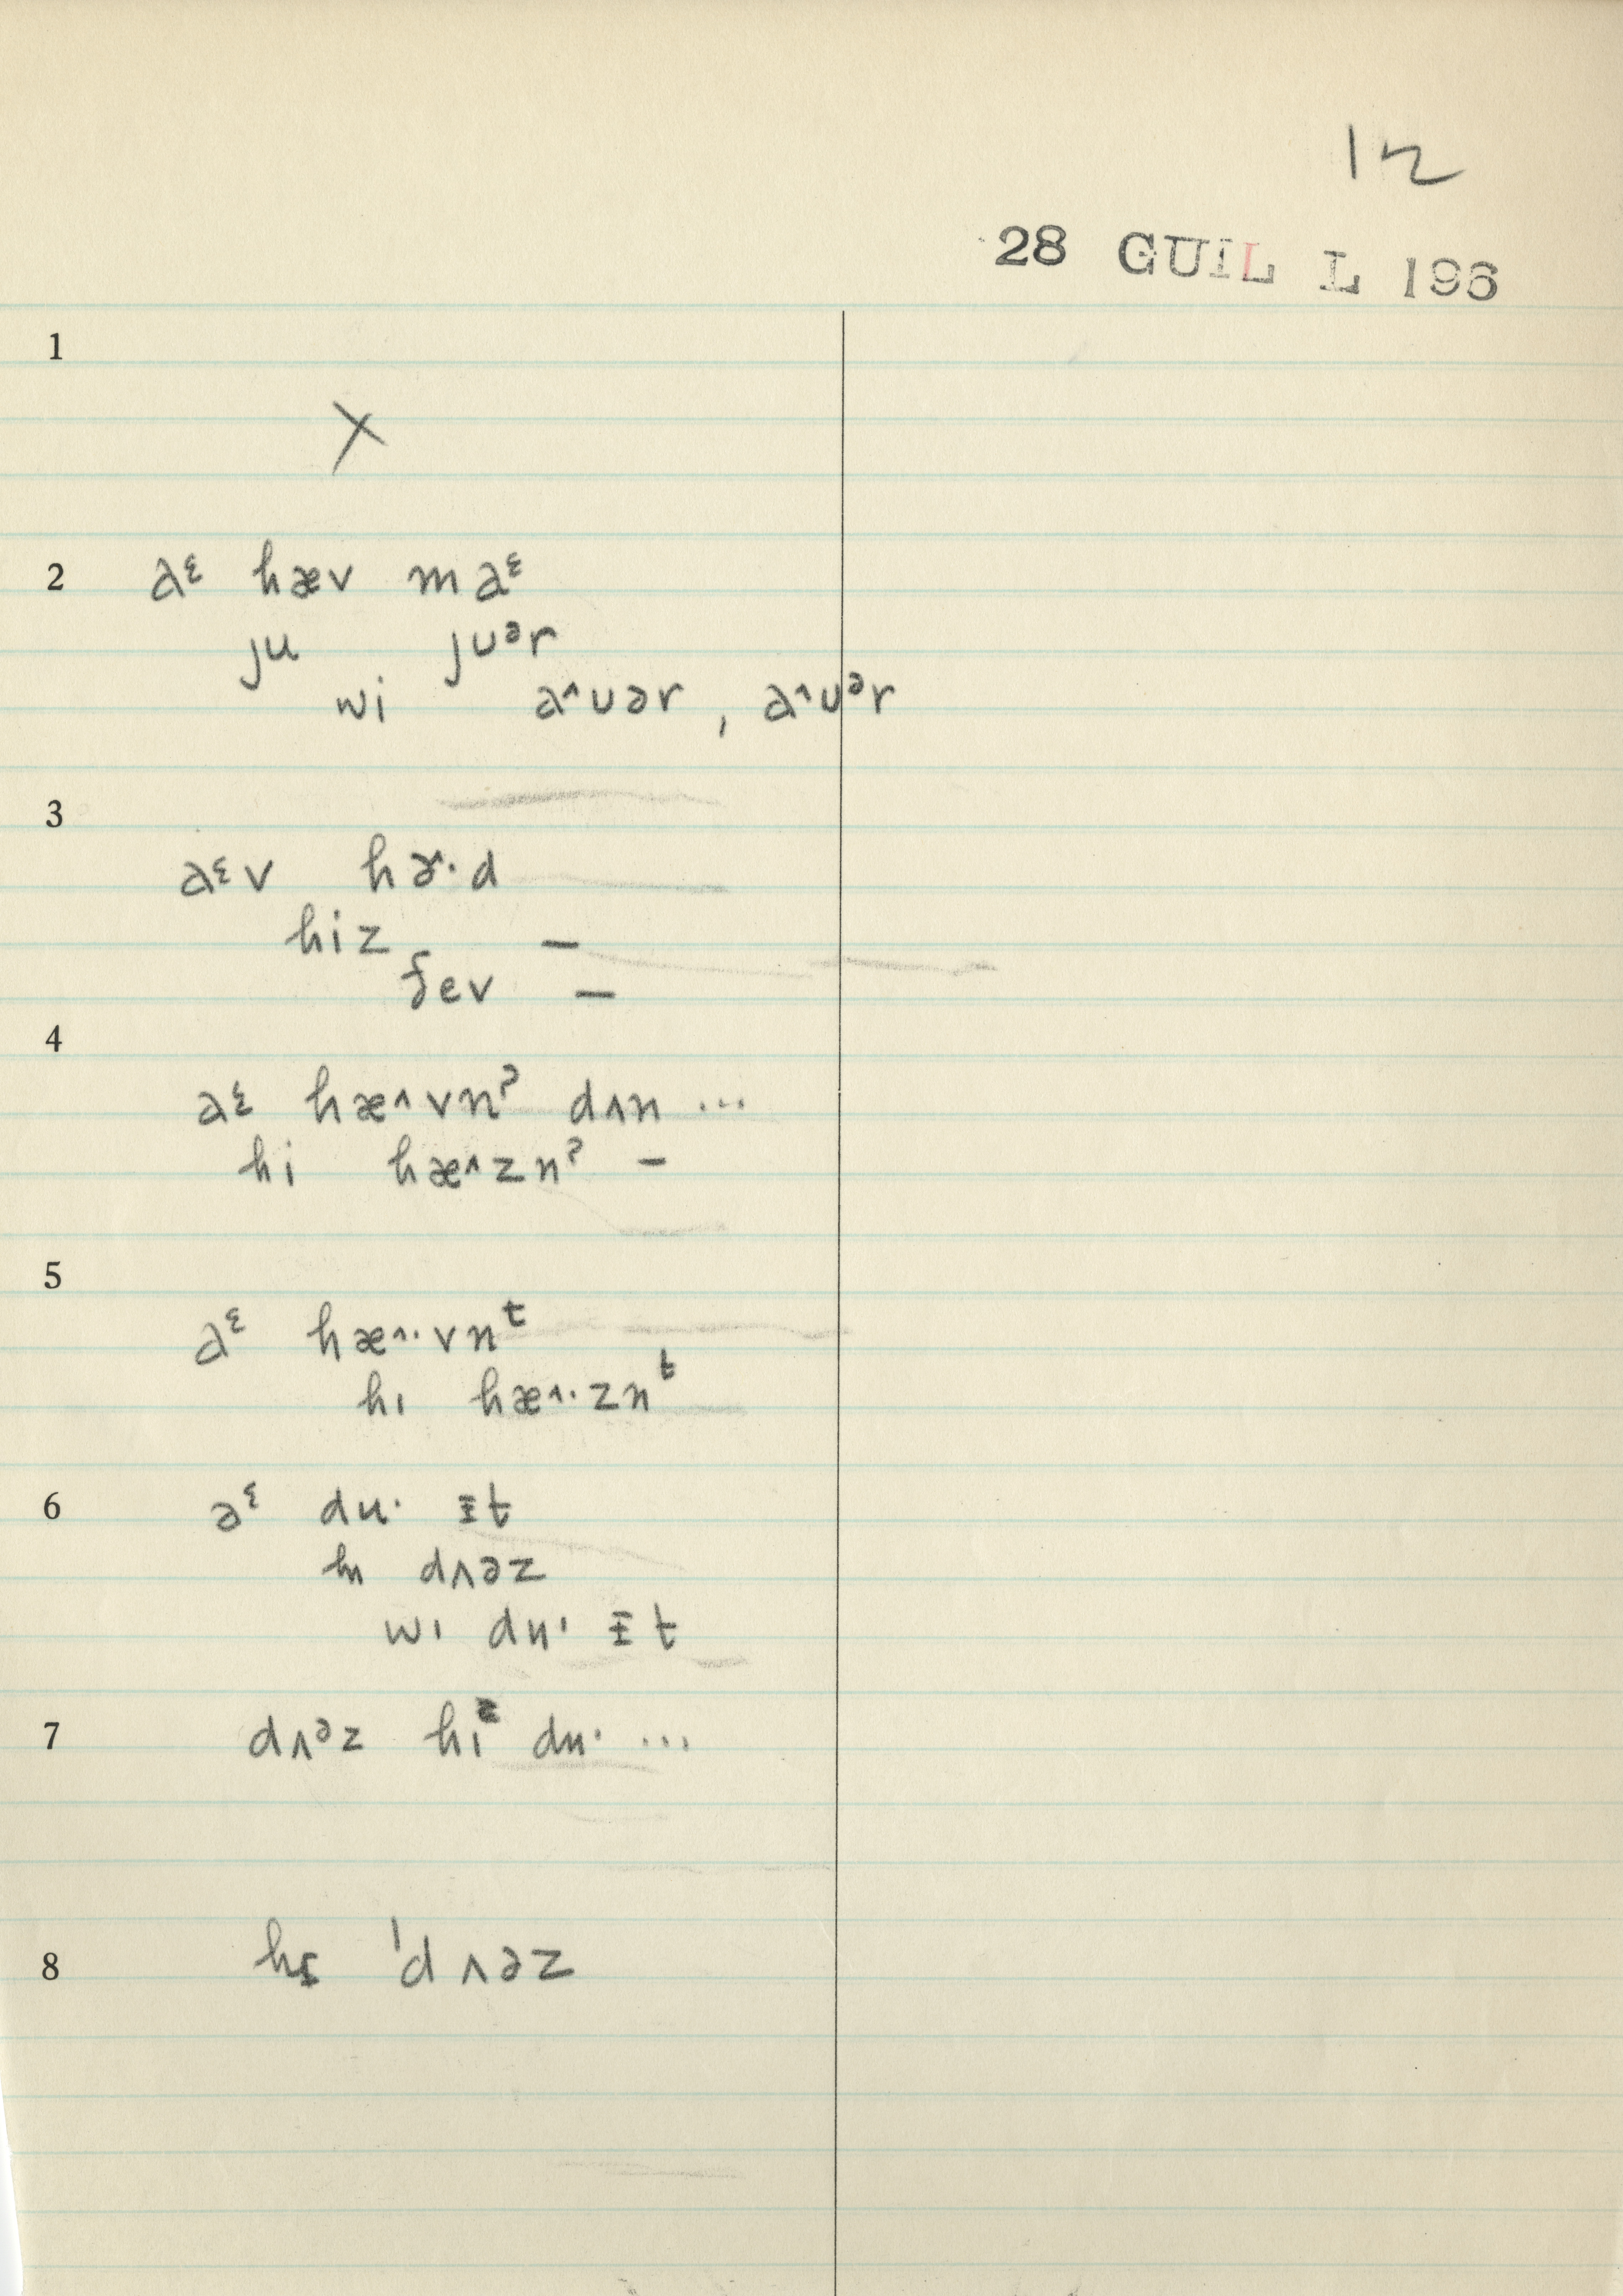 12
28 GUIL L 196
1
X
2 aᵋ hæv maᵋ
ju juᵊr
wi a^uər, a^uᵊr
3 aᵋv hɚ·d
hiz –
ðev –
4 aᵋ hæ^vnˀ dʌn ...
hi hæ^znˀ –
5 aᵋ hæ^·vnᵗ
hi hæ^·znᵗ
6 aᵋ du· ᵻt
hi dʌəz
wi du· ᵻt
7 dʌᵊz hi du· ...
8 hɪ 'dʌəz